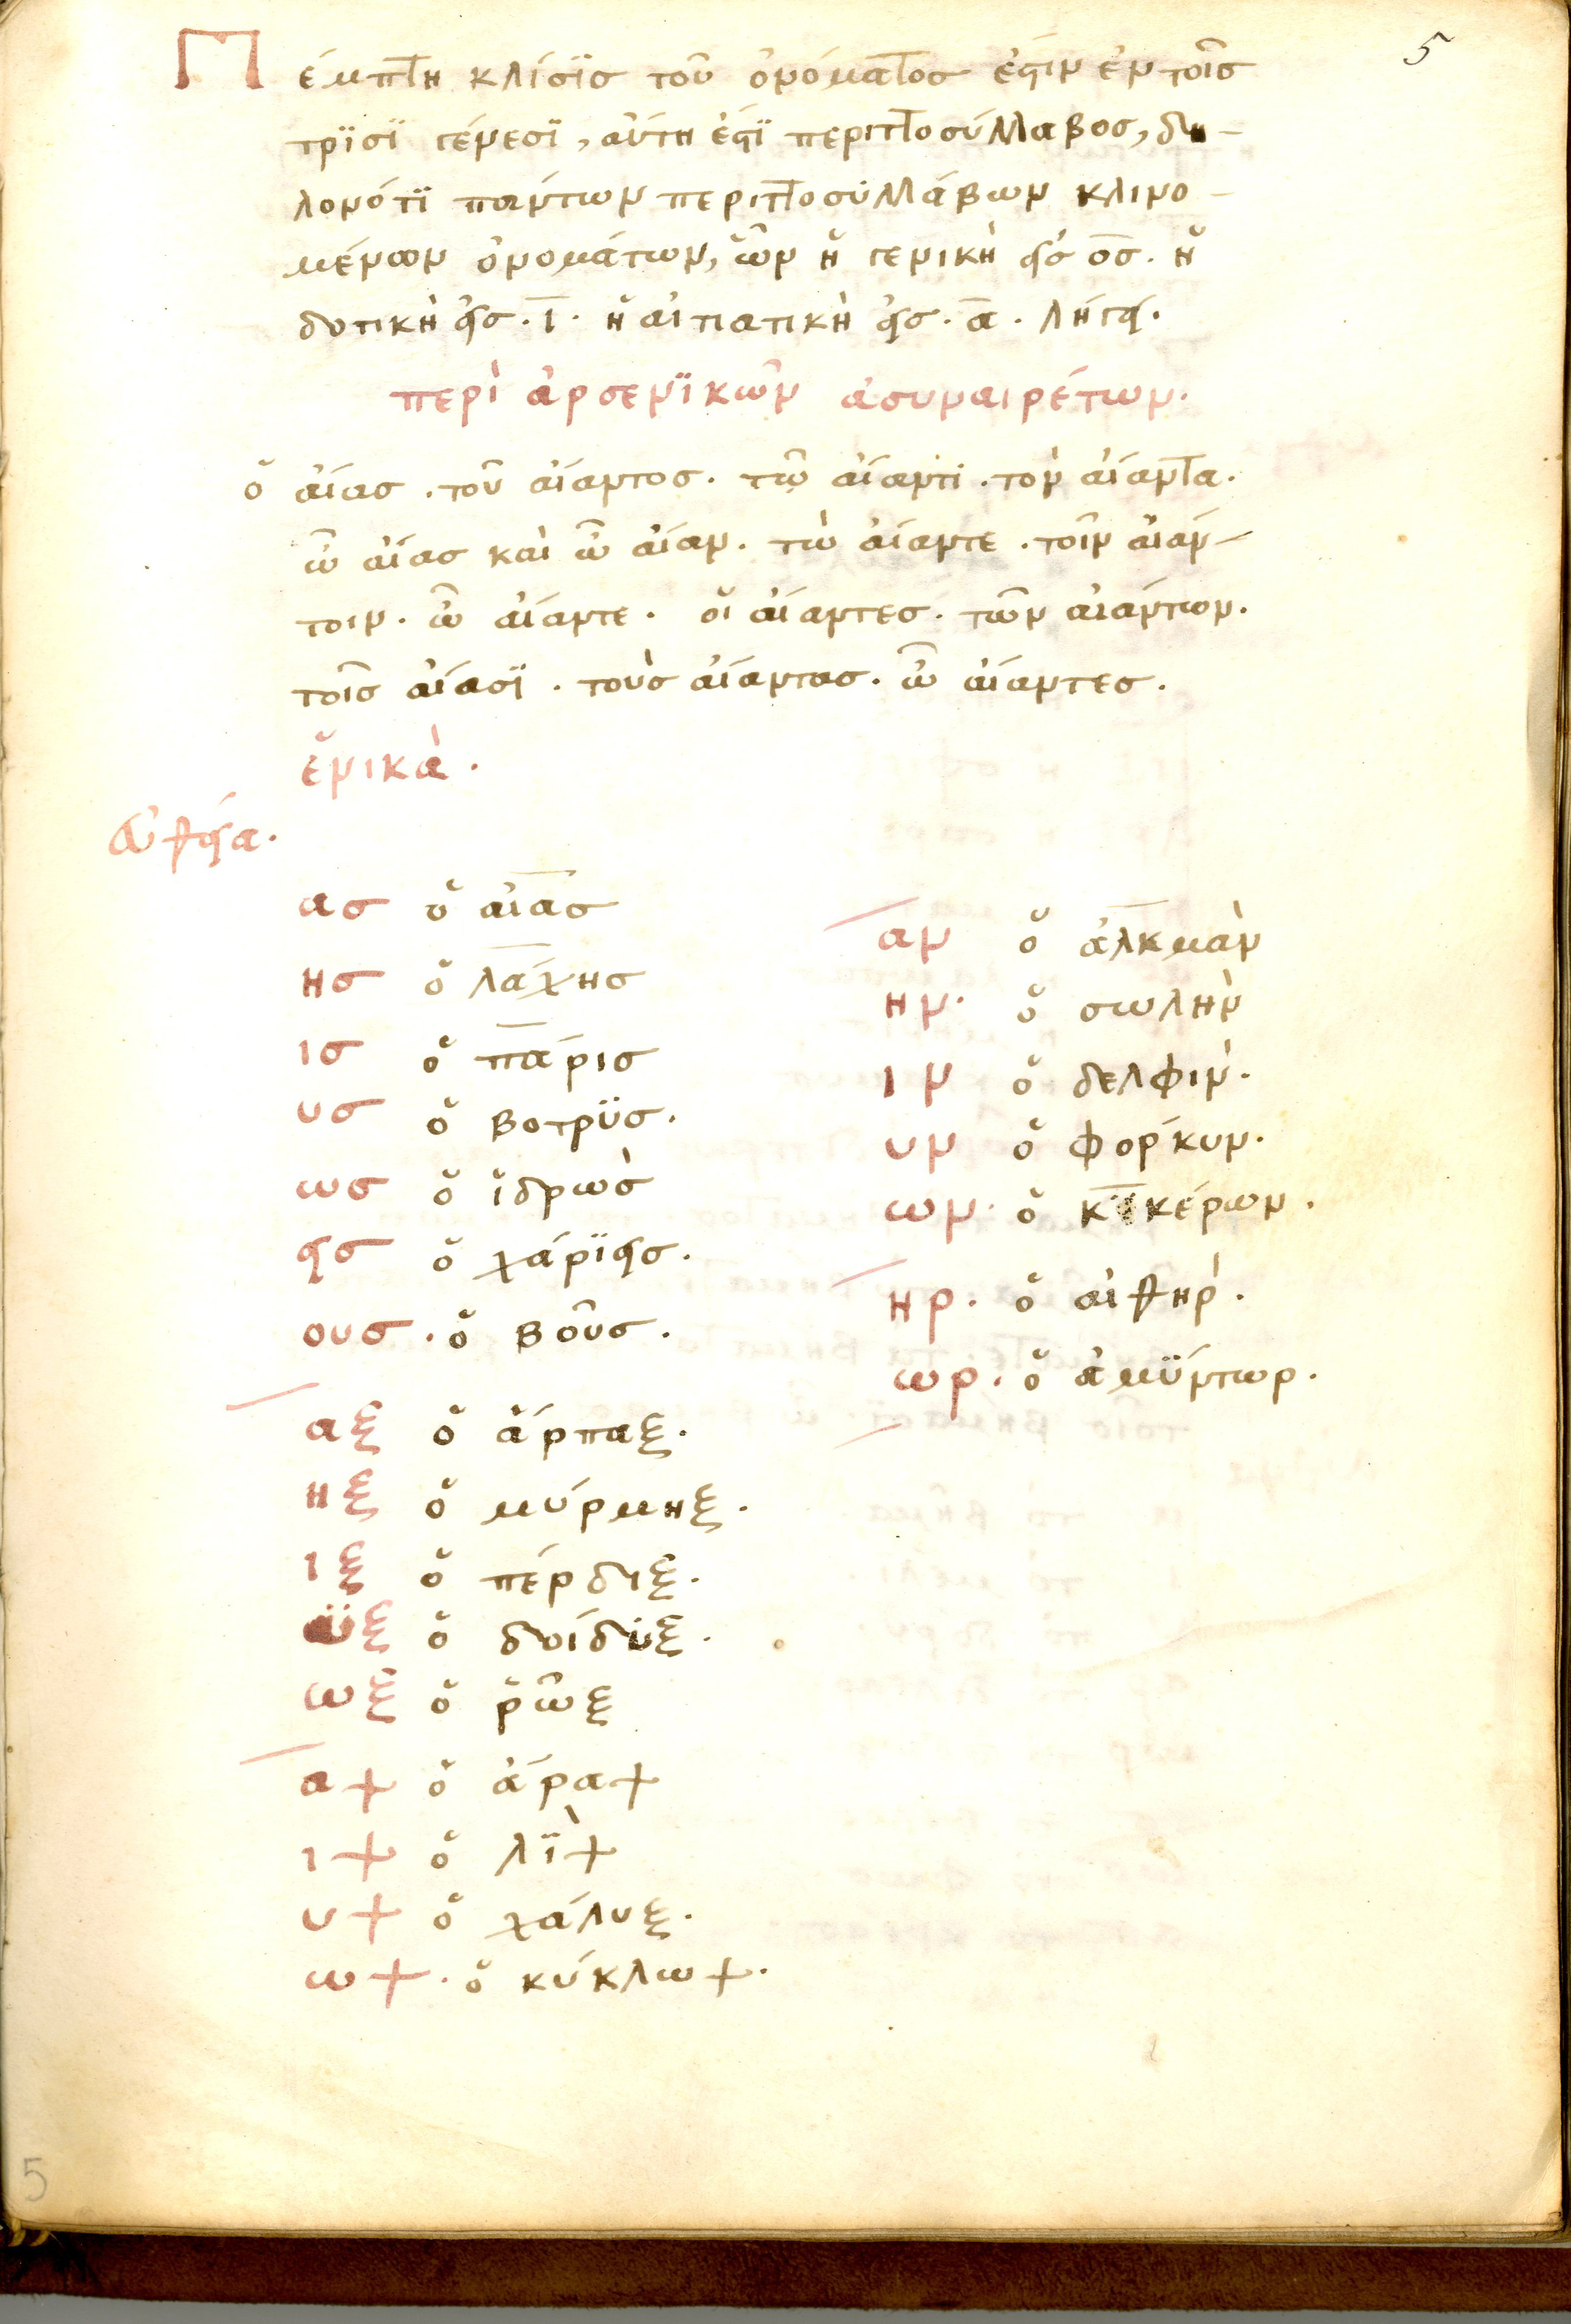 5
Πέμπτη κλίσϊς τοῦ ὀνόματος ἐστὶν ἐν τοῖς
τρϊσϊ γένεσϊ, αὕτη ἐστϊ περιττοσύλλαβος, δη-
λονότϊ πάντων περιττοσϋλλάβων κλινο-
μένων ὀνομάτων, ὧν ἡ γενικὴ εἰς ος. ἡ
δοτικὴ εἰς. ι. ἡ αἰτιατικὴ εἰς. α. λήγει.
περὶ ἀρσενϊκῶν ἀσυναιρέτων.
ὁ αἴας. τοῦ αἴαντος. τῷ αἴαντι. τὸν αἴαντα.
ὦ αἴας καὶ ὦ αἴαν. τὼ αἴαντε. τοῖν αἰάν-
τοιν. ὦ αἴαντε. οἱ αἴαντες. τῶν αἰάντων.
τοῖς αἴασϊ. τοὺς αἴαντας. ὦ αἴαντες.
ἑνικὰ.
ας ὁ αἴας
ης ὁ λάχης
ις ὁ πάρις
υς ὁ βοτρϋς.
ως ὁ ἱδρὼς
εις ὁ χάρϊεις.
ους. ὁ βοῦς.
αξ ὁ ἅρπαξ.
ηξ ὁ μύρμηξ.
ιξ ὁ πέρδιξ.
ϋξ ὁ δοίδϋξ.
ωξ ὁ ῥῶξ
αψ ὁ ἄραψ
ιψ ὁ λῒψ
υψ ὁ χάλυξ.
ωψ. ὁ κύκλωψ.
αν ὁ ἀλκμὰν
ην. ὁ σωλὴν
ιν ὁ δελφιν.
υν ὁ φόρκυν.
ων. ὁ κικέρων.
ηρ. ὁ αἰθὴρ.
ωρ. ὁ ἀμΰντωρ.
5